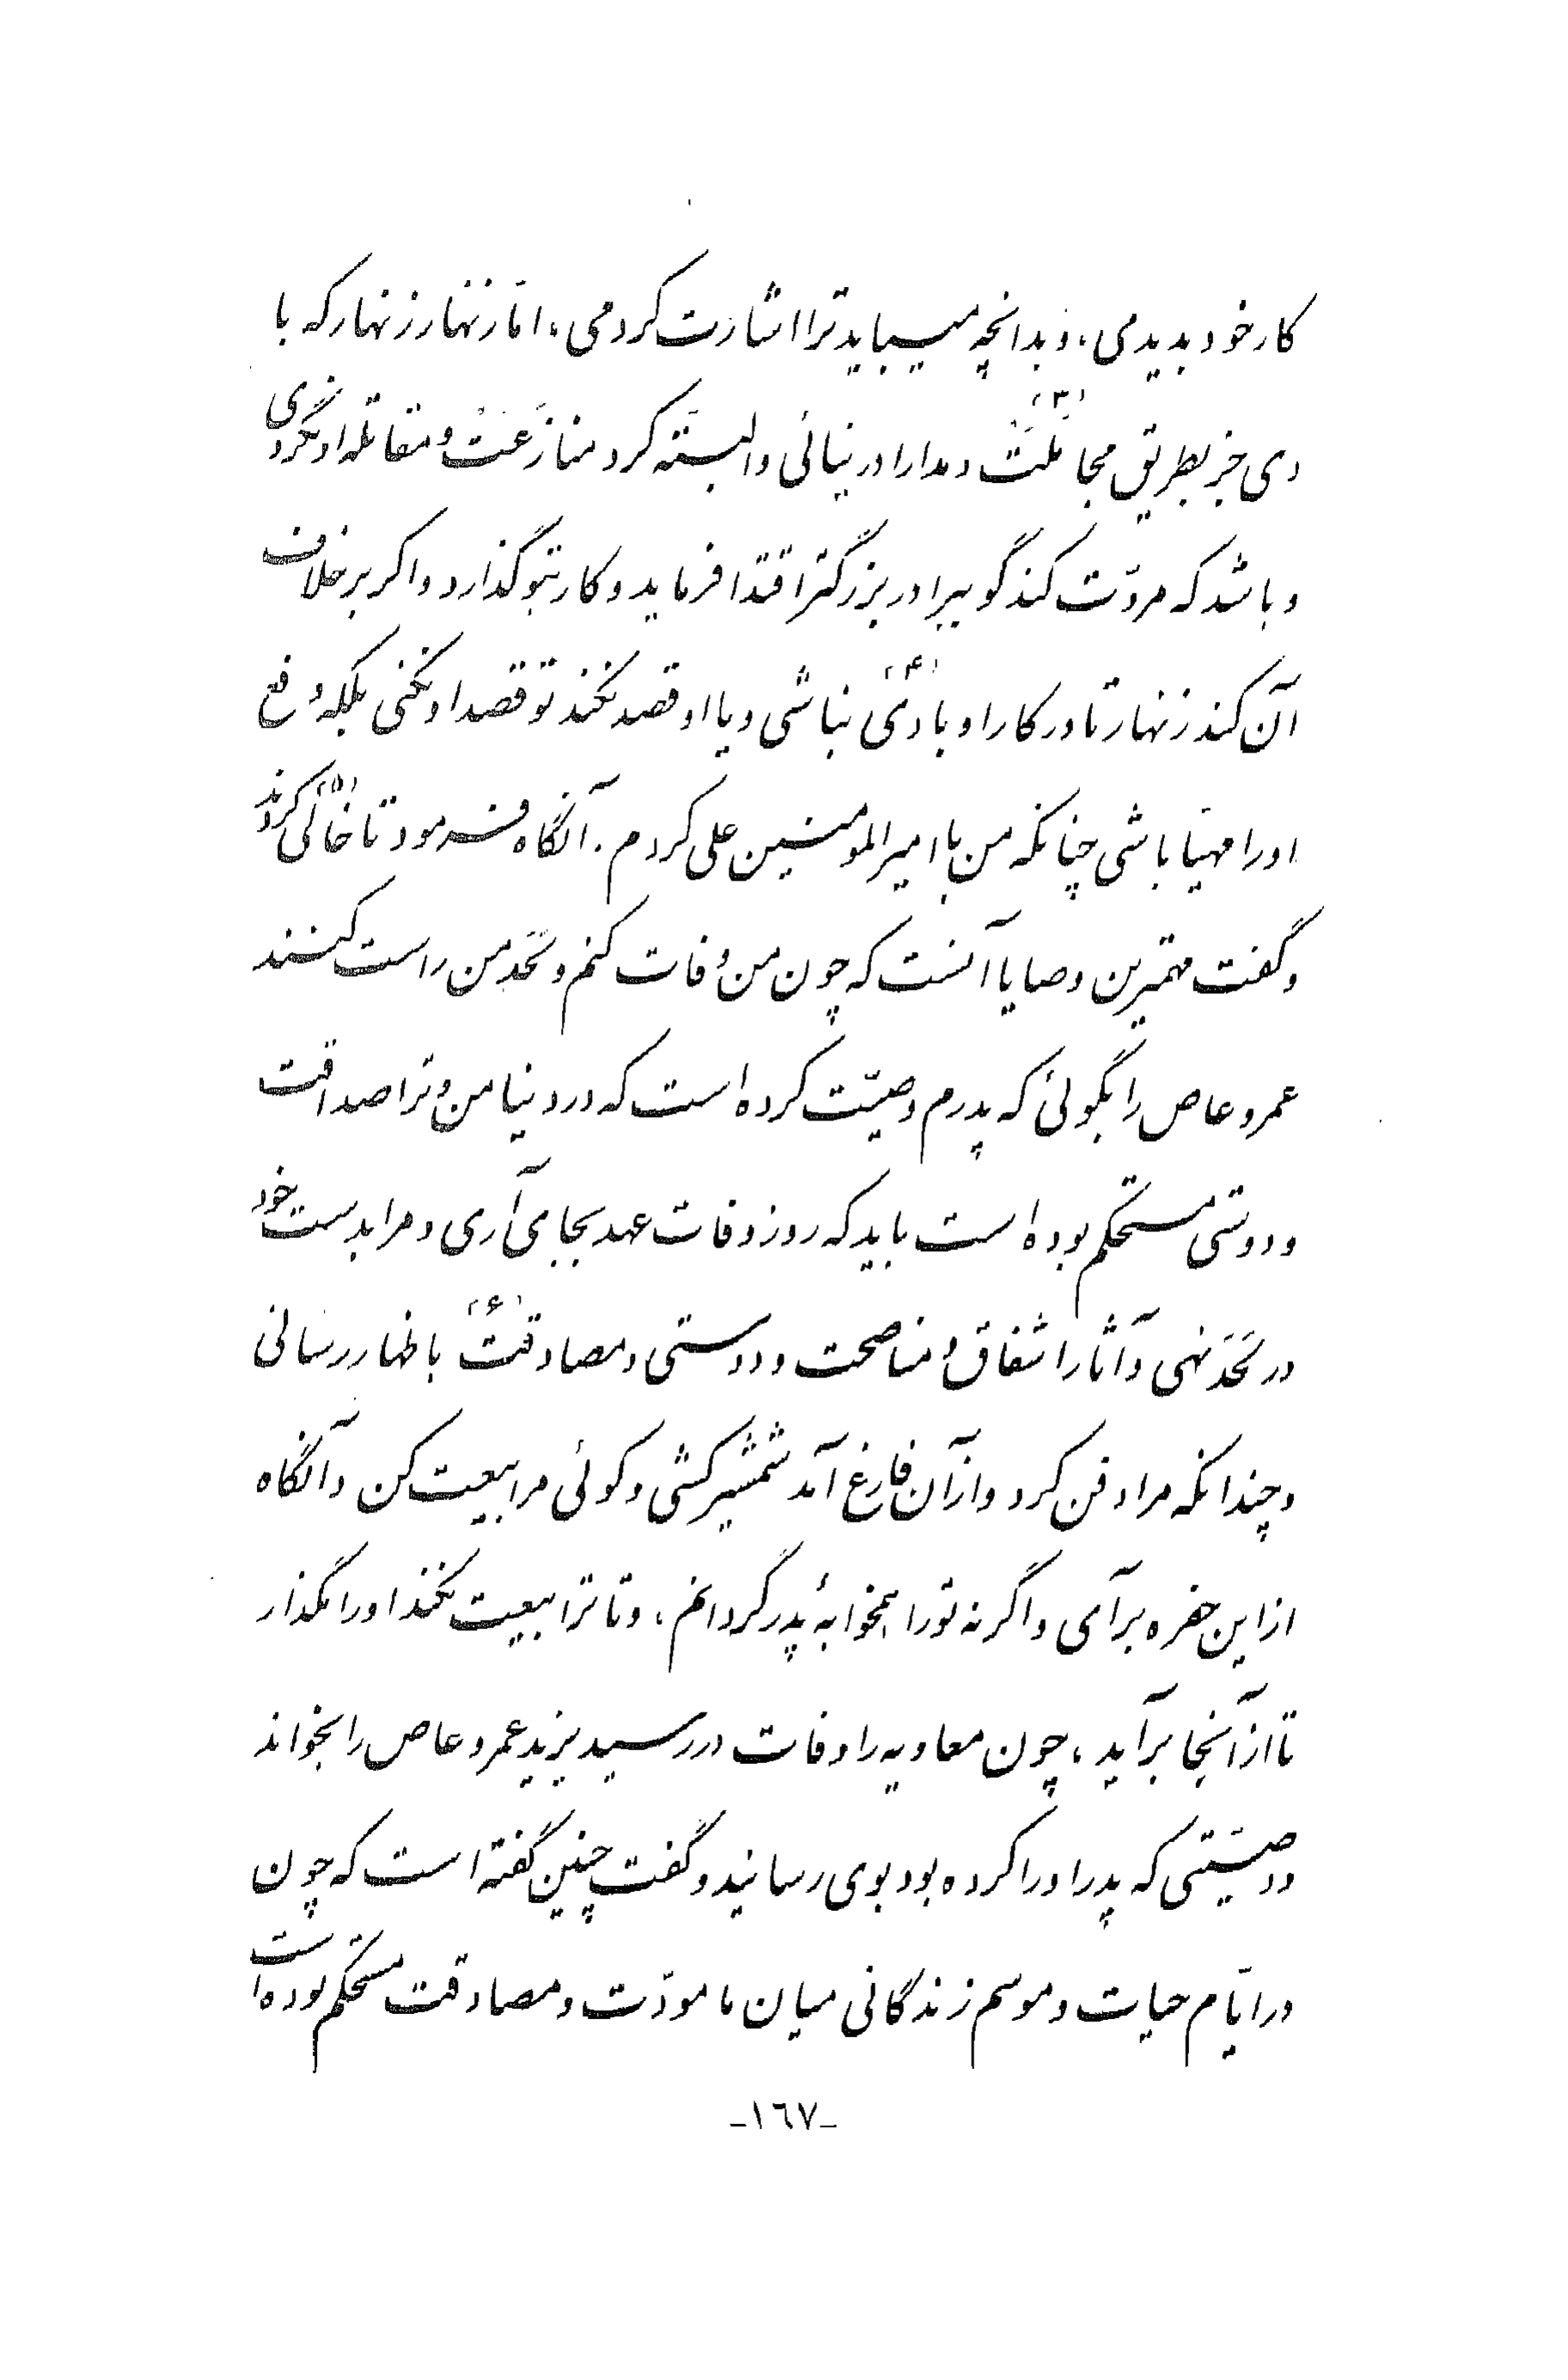 کار خود بدیدمی، و بدانچه میباید ترا اشارت کردمی، امّا زنهار زنهار که با
وی جز بطریق مجاملت (۳) و مدارا در نیائی و البسته گرد منازعت و مقاتله او نگردی
و باشد که مروّت کند گوید برادر بزرگتر اقتدا فرماید و کار بتو گذارد و اگر بر خلاف
آن کند زنهار تا در کار او بادی (۴) نباشی و با او قصد نکند تو قصد او نکنی بلکه دفع
او را مهیّا باشی چنانکه من با امیرالمومنین علی کردم. آنگاه فرمود تا خالی (۵) کردند
و گفت مهمترین وصایا آنست که چون من وفات کنم و لحد من راست کنند
عمرو عاص را بگوئی که پدرم وصیّت کرده است که در دنیا من و ترا صداقت
و دوستی مستحکم بوده است باید که روز وفات عهد بجای آری و مرا بدست خود
در لحد نهی و آثار اشفاق و مناصحت و دوستی و مصادقت (۶) باظهار رسانی
و چندانکه مرا دفن کرد و از آن فارغ آمد شمشیر کشی و گوئی مرا بیعت کن و آنگاه
از این حفره برآی و اگر نه تو را همخوابهٔ پدر گردانم، و تا ترا بیعت نکند او را نگذار
تا از آنجا برآید، چون معاویه را وفات در رسید یزید عمرو عاص را بخواند
و وصیّتی که پدر او را کرده بود بوی رسانید و گفت چنین گفته است که چون
در ایّام حیات و موسم زندگانی میان ما مودّت و مصادقت مستحکم بوده است
-۱٦۷-